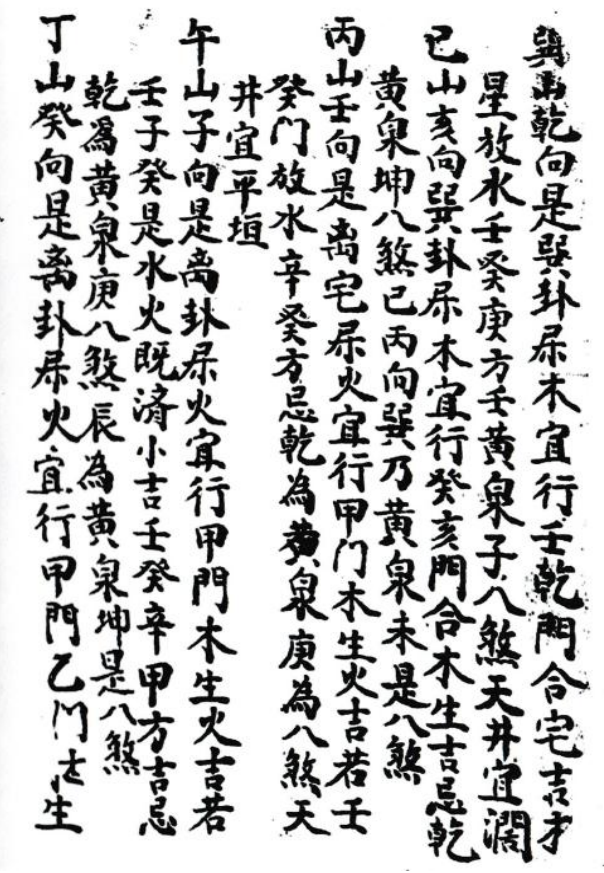 巽山乾向是巽卦屬木宜行壬乾門合宅吉才
星放水壬癸庚方壬黃泉子八煞天井宜濶
巳山亥向巽卦屬木宜行癸亥門合木生吉忌乾
黃泉坤八煞巳丙向巽乃黃泉未是八煞
丙山壬向是离宅屬火宜行甲门木生火吉若壬
癸门放水辛癸方忌乾為黃泉庚為八煞天
井宜平垣
午山子向是离卦屬火宜行甲門木生火吉若
壬子癸是水火既濟小吉壬癸辛甲方吉忌
乾爲黃泉庚八煞辰為黃泉坤是八煞
丁山癸向是离卦屬火宜行甲門乙门生